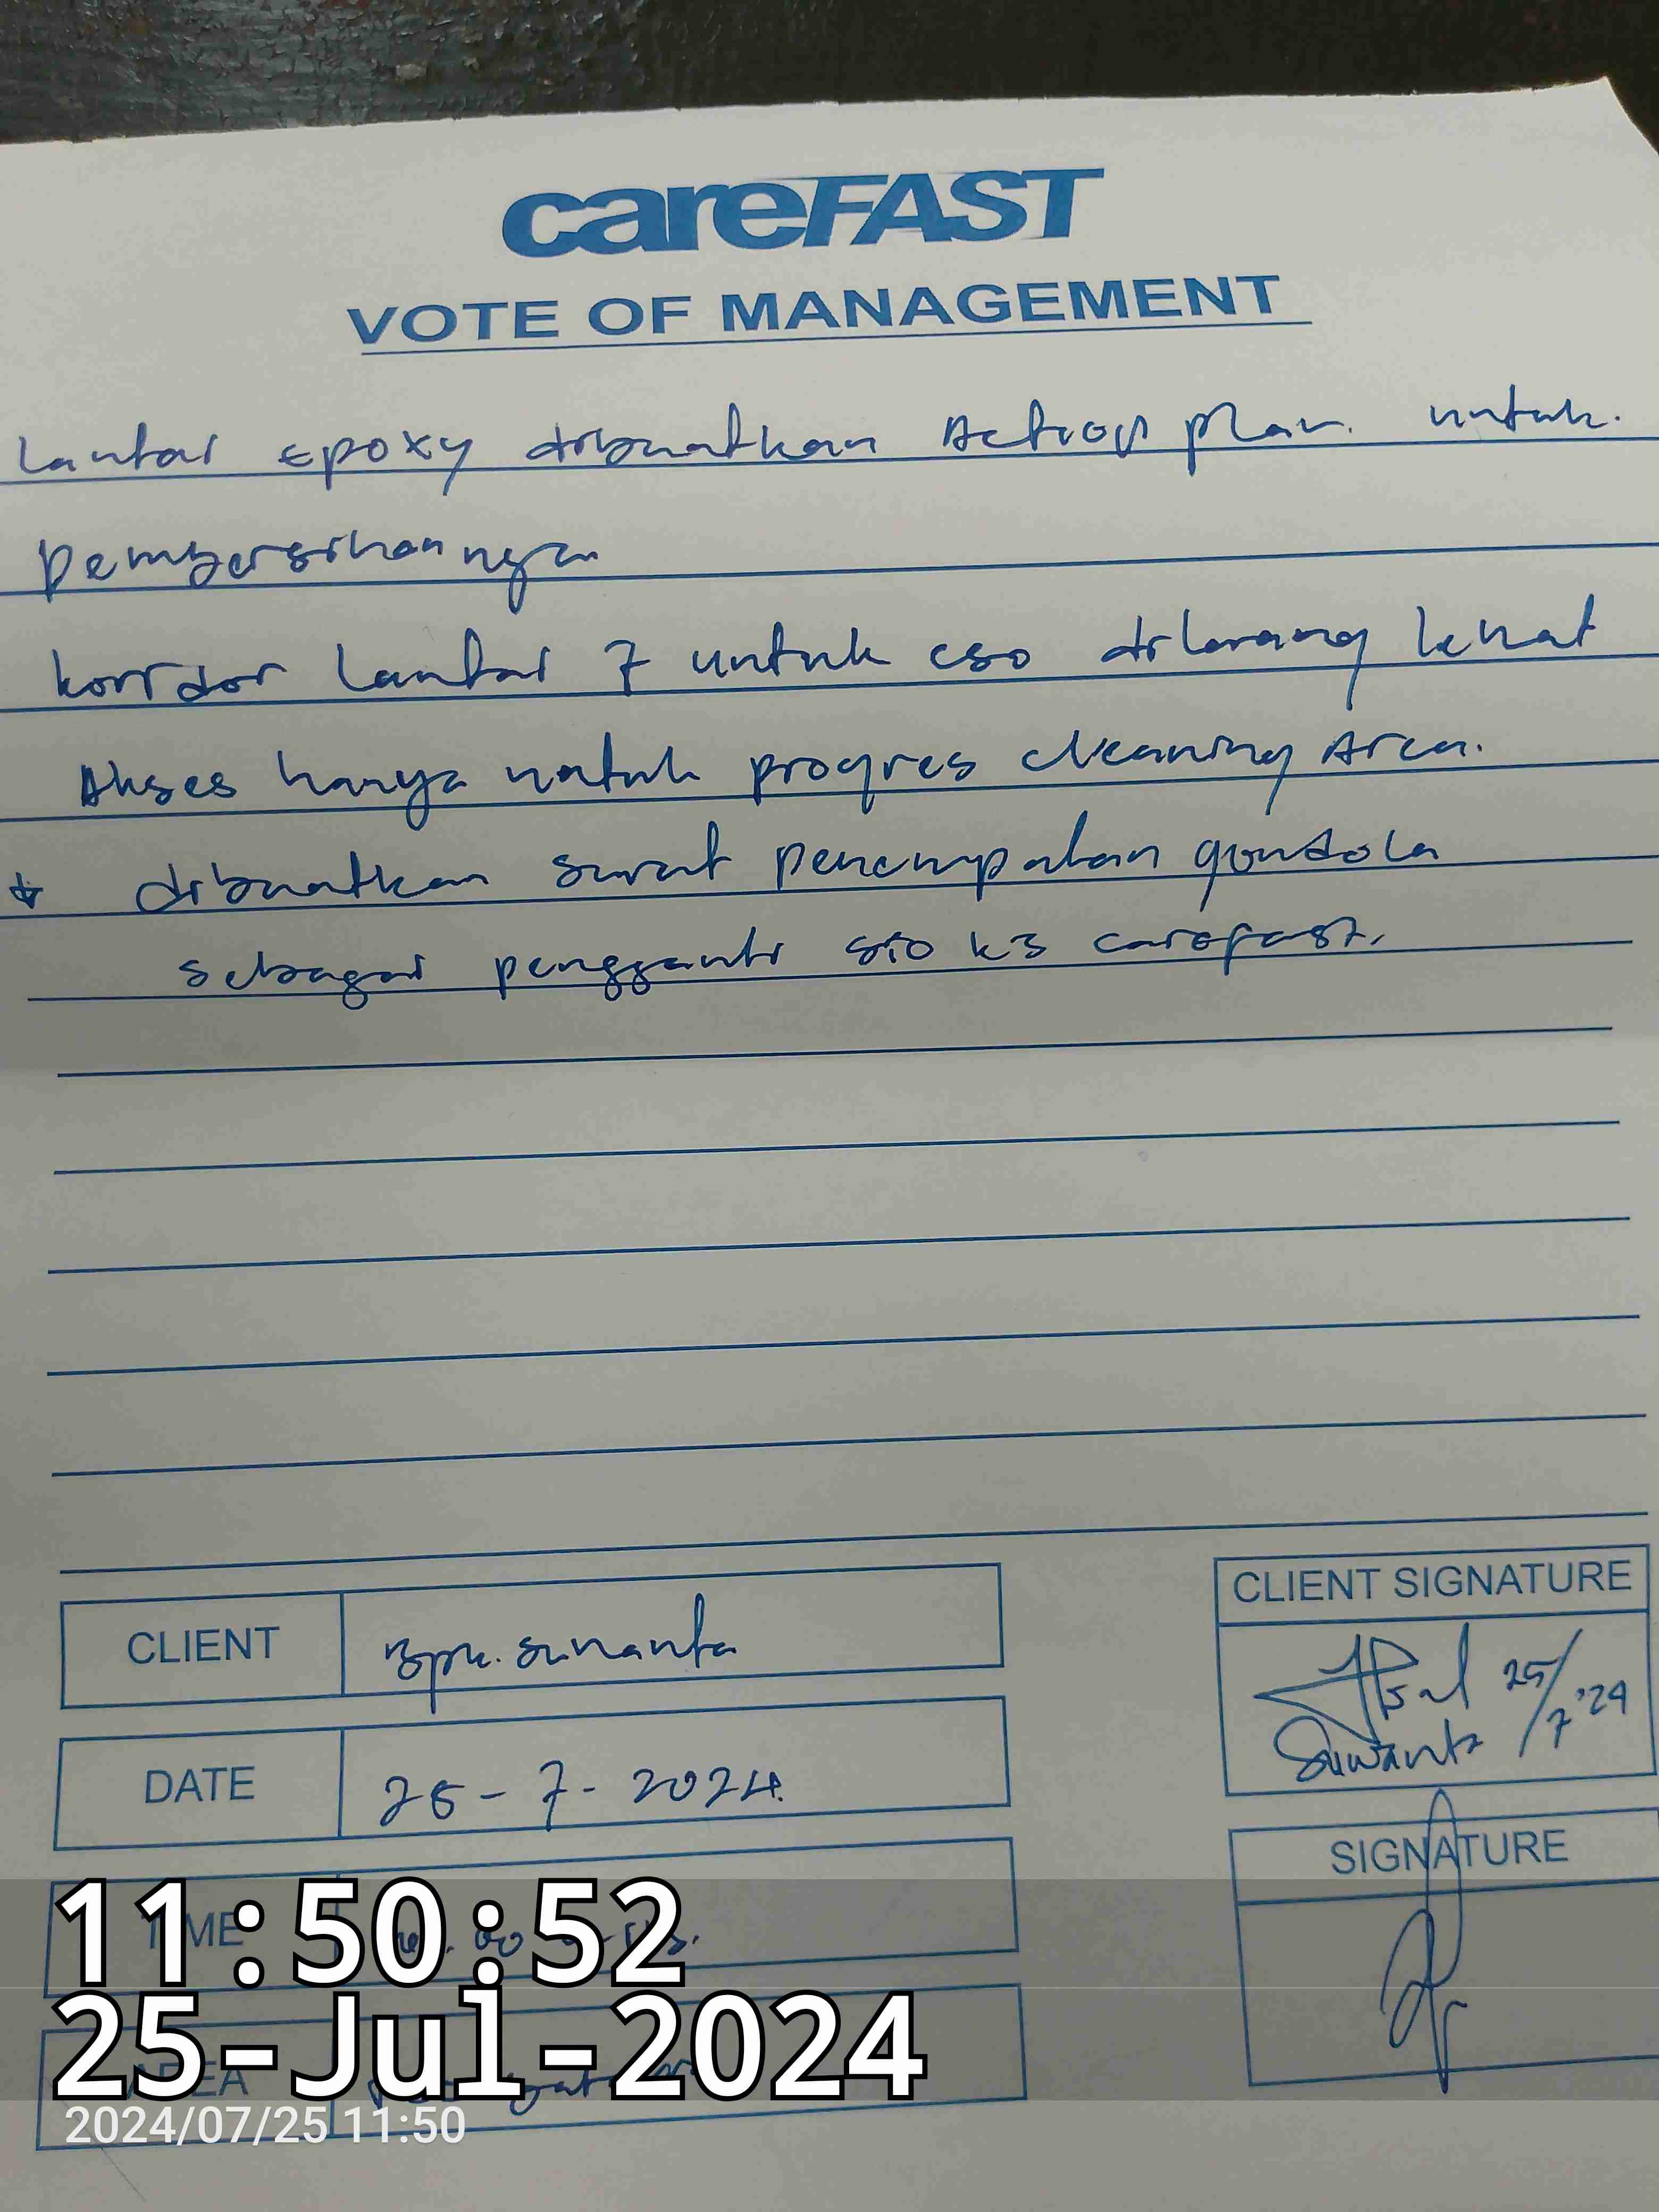 careFAST
VOTE OF MANAGEMENT
Lantai Epoxy dibuatkan Action plan. untuk.
pembersihannya
koridor Lantai 7 untuk cso dilarang lewat
Akses hanya untuk progres cleaning Area.
* dibuatkan surat penempatan gondola
sebagai pengganti sio k3 carefast.
CLIENT
Bpk. Sunanta
CLIENT SIGNATURE
25/7 '24
Suwanta
DATE
25-7-2024.
SIGNATURE
TIME
AREA
11:50:52
25-Jul-2024
2024/07/25 11:50